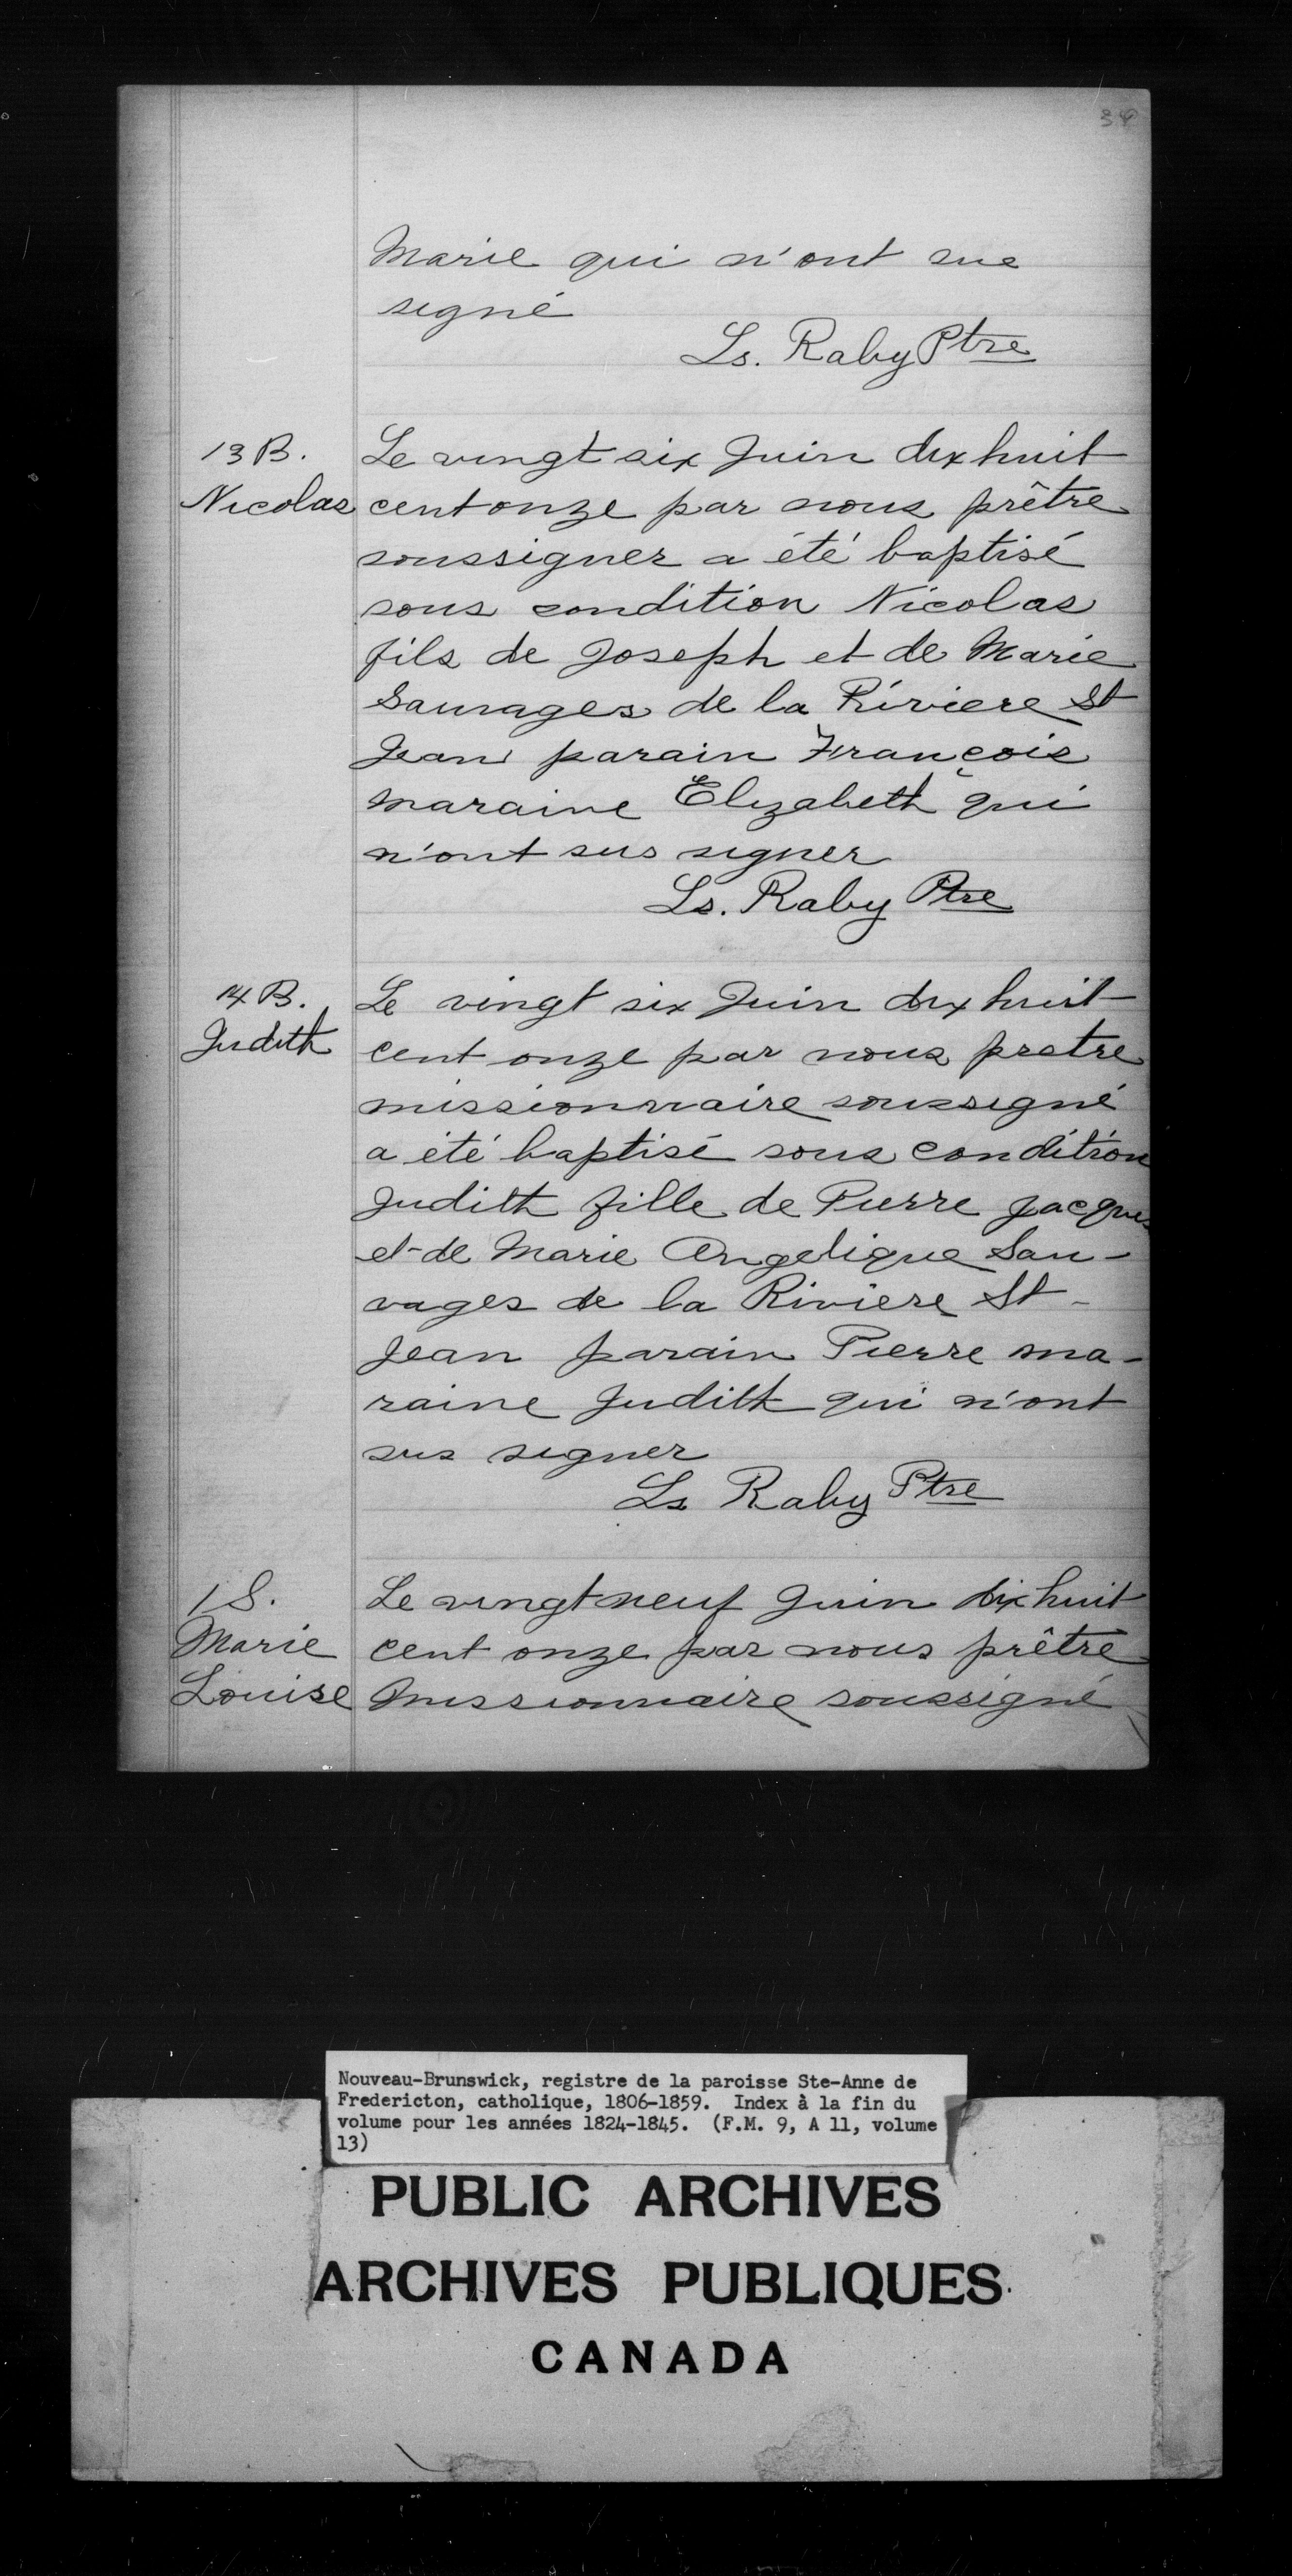 38
Marie qui n'ont sue
signé
Ls. Raby Ptre
13 B.
Nicolas
Le vingt six Juin dix huit
cent onze par nous prêtre
soussigner a été baptisé
sous condition Nicolas
fils de Joseph et de Marie
Sauvages de la Riviere St
Jean parain François
maraine Elizabeth qui
n'ont sus signer
Ls. Raby Ptre
14 B.
Judith
Le vingt six Juin dix huit
cent onze par nous pretre
missionnaire soussigné
a été baptisé sous condition
Judith fille de Pierre Jacques
et de Marie Angelique Sau-
vages de la Riviere St-
Jean parain Pierre ma-
raine Judith qui n'ont
sus signer
Ls Raby Ptre
1 S.
Marie
Louise
Le vingt neuf Juin dix huit
cent onze par nous prêtre
missionnaire soussigné
Nouveau-Brunswick, registre de la paroisse Ste-Anne de
Fredericton, catholique, 1806-1859. Index à la fin du
volume pour les années 1824-1845. (F.M. 9, A 11, volume
13)
PUBLIC ARCHIVES
ARCHIVES PUBLIQUES
CANADA